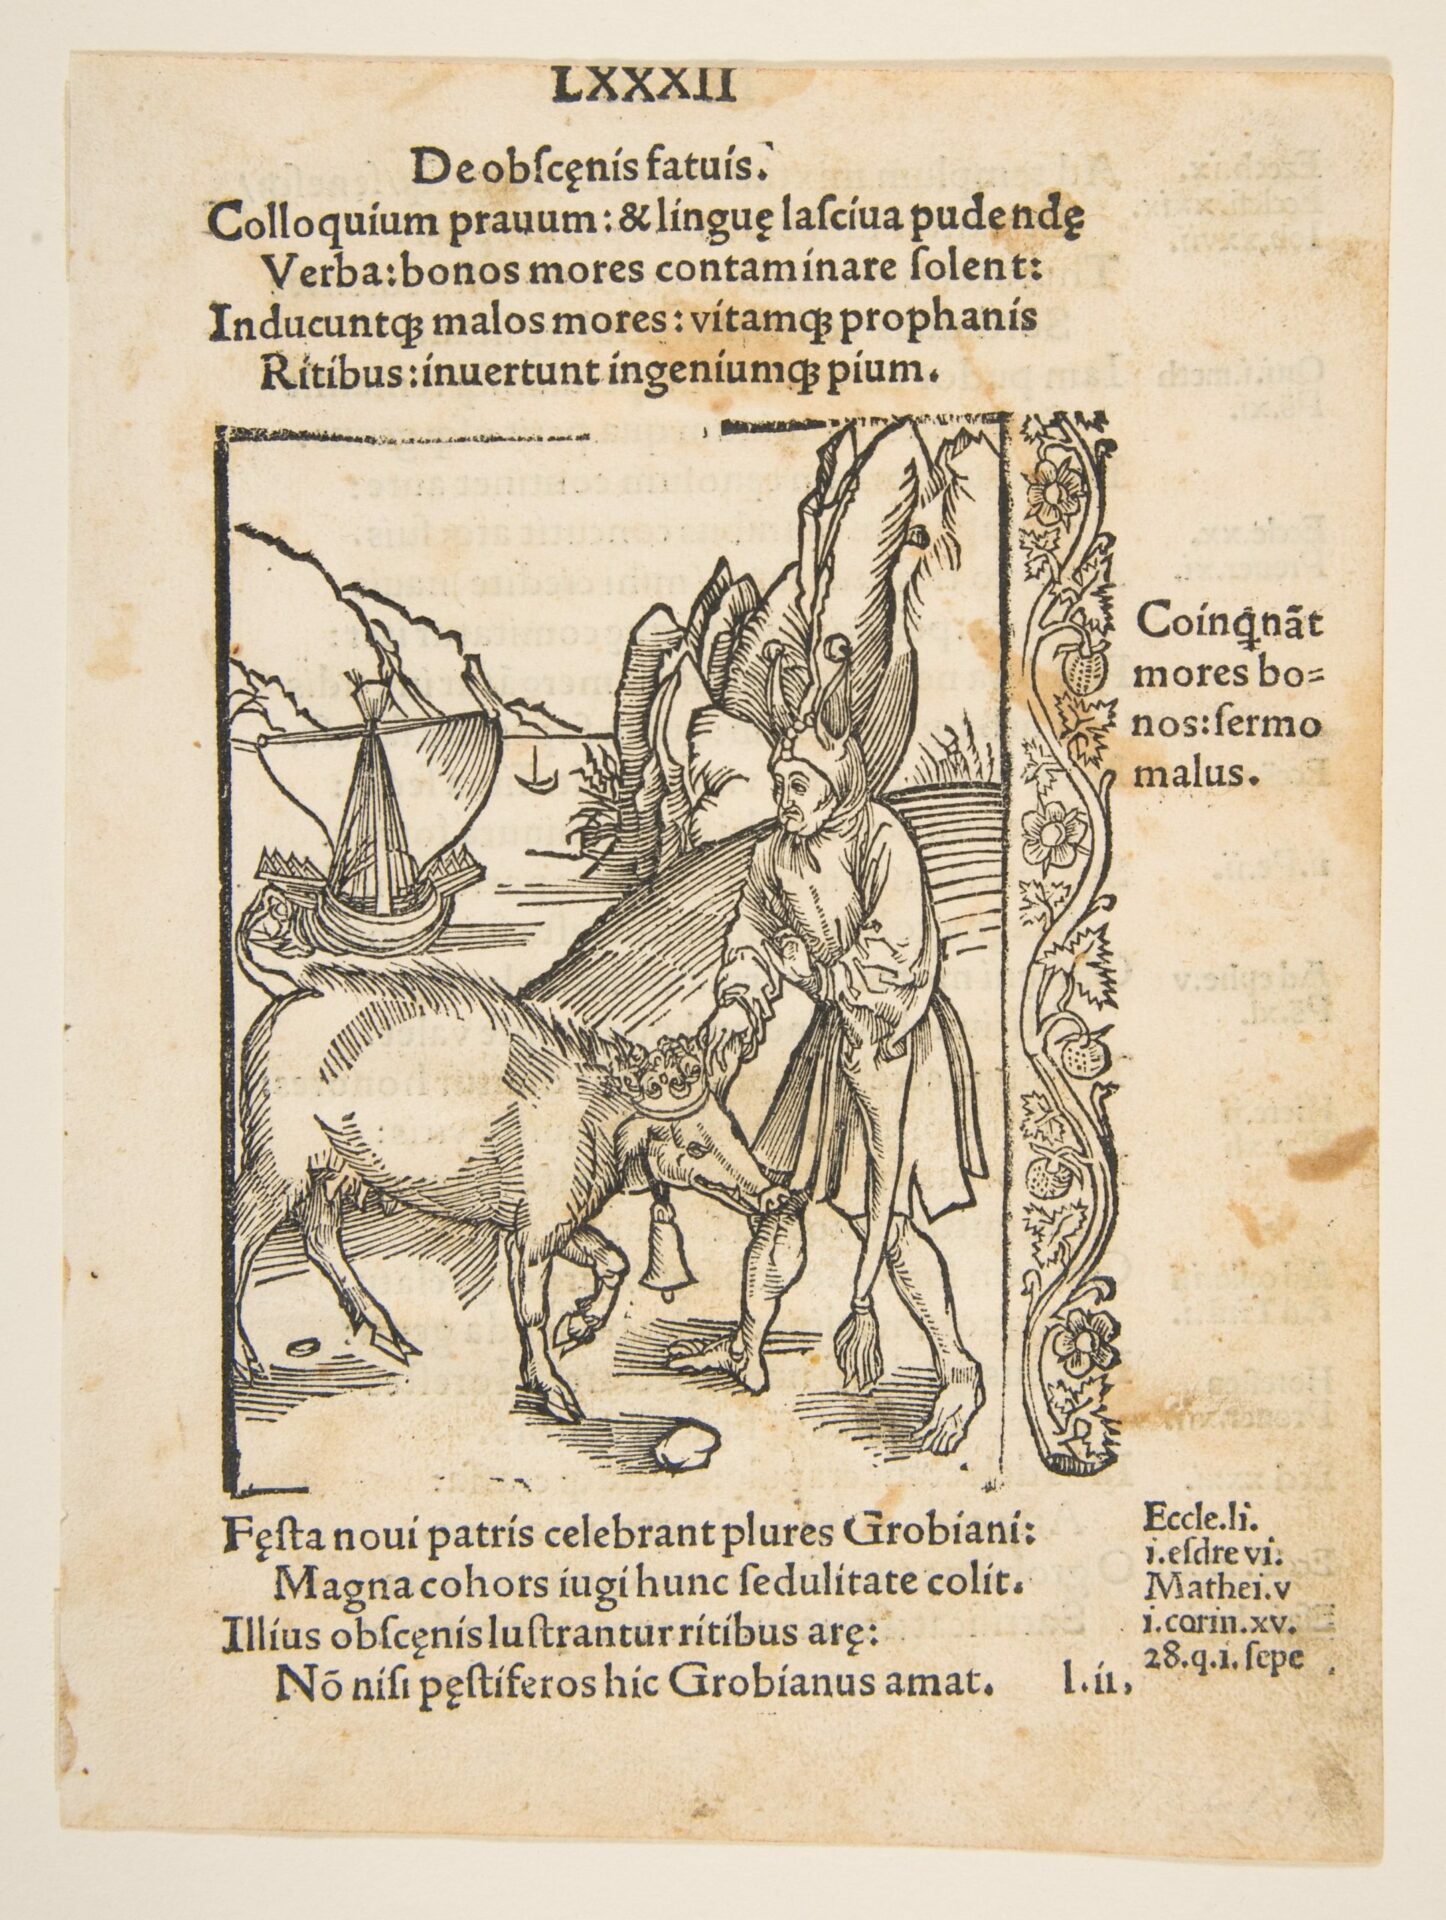 LXXXII
De obſcęnis fatuis.
Colloquium prauum: & linguę laſciua pudendę
Verba: bonos mores contaminare ſolent:
Inducuntqꝫ malos mores: vitamqꝫ prophanis
Ritibus: inuertunt ingeniumqꝫ pium.
Coinq̄nāt
mores bo=
nos: ſermo
malus.
Fęſta noui patris celebrant plures Grobiani:
Magna cohors iugi hunc ſedulitate colit.
Illius obſcęnis luſtrantur ritibus arę:
Nō niſi pęſtiferos hic Grobianus amat.
l.ii,
Eccle.li.
i.eſdre vi.
Mathei.v
i.corin.xv.
28.q.i.ſepe